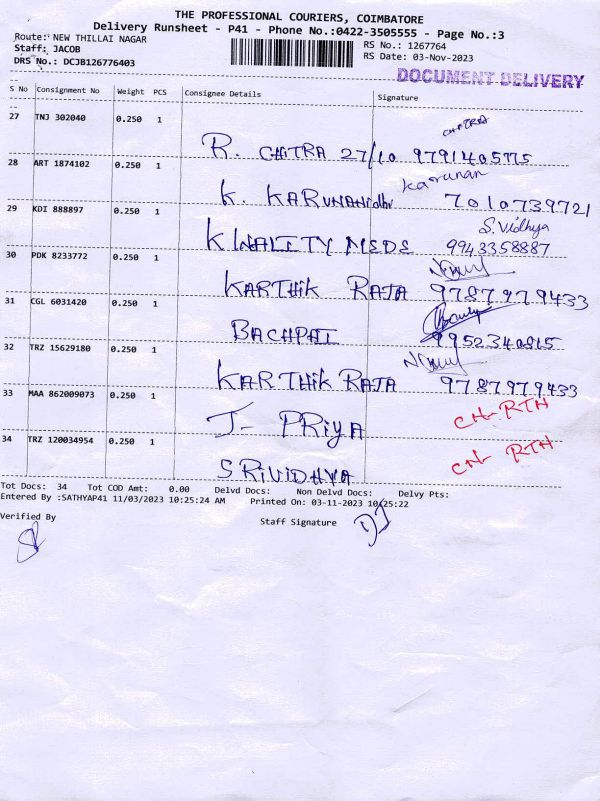 THE PROFESSIONAL COURIERS, COIMBATORE
Delivery Runsheet - P41 - Phone No.:0422-3505555 - Page No.:3
Route: NEW THILLAI NAGAR
RS No.: 1267764
Staff: JACOB
RS Date: 03-Nov-2023
DRS No.: DCJB126776403
DOCUMENT DELIVERY
S No Consignment No Weight PCS Consignee Details Signature
27 TNJ 302040 0.250 1
CHITRA
R. CHITRA 27/10 9791405775
28 ART 1874102 0.250 1
Karunan
K. KARUNANidhi 7010739721
29 KDI 888897 0.250 1
S. Vidhya
KWALITY MEDS 9943358887
30 PDK 8233772 0.250 1
KARTHIK RAJA 9787979433
31 CGL 6031420 0.250 1
BACHPAI 9952340815
32 TRZ 15629180 0.250 1
KARTHIK RAJA 9787979433
33 MAA 862009073 0.250 1
J- PRIYA CN-RTH
34 TRZ 120034954 0.250 1
SRIVIDHYA CN- RTH
Tot Docs: 34 Tot COD Amt: 0.00 Delvd Docs: Non Delvd Docs: Delvy Pts:
Entered By :SATHYAP41 11/03/2023 10:25:24 AM Printed On: 03-11-2023 10:25:22
Verified By
Staff Signature